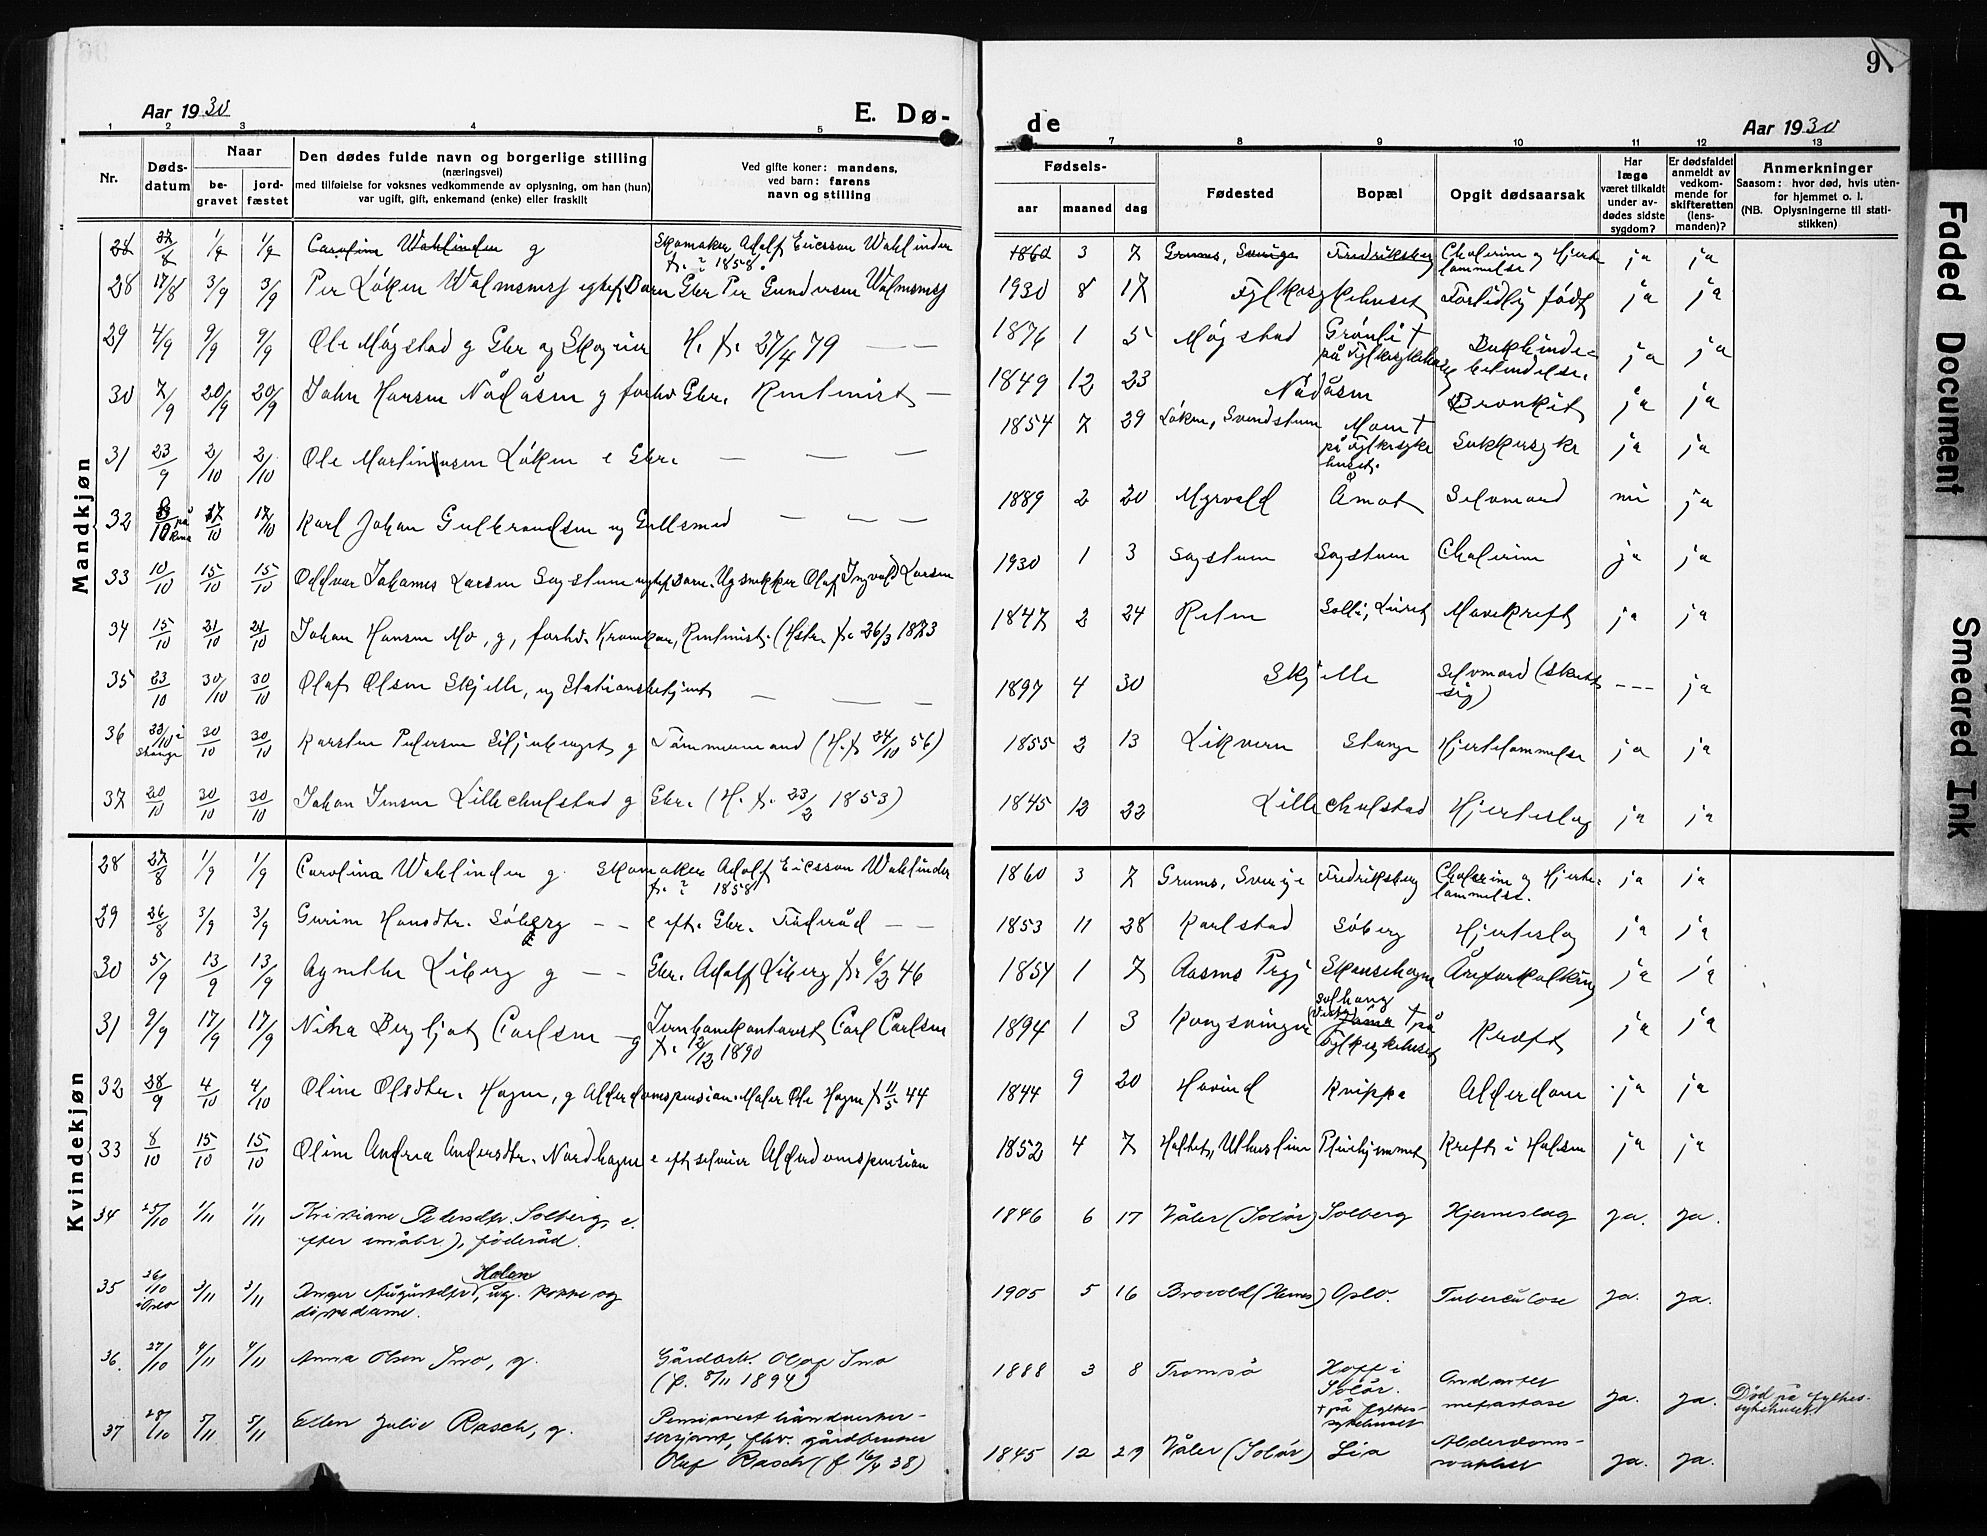 9
Aar 1930
E. Dø-
de
Aar 1930
1 2 3 4 5
7 8 9 10 11 12 13
Nr.
Døds-
datum
Naar
be-
gravet
jord-
fæstet
Den dødes fulde navn og borgerlige stilling
(næringsvei)
med tilføielse for voksnes vedkommende av oplysning, om han (hun)
var ugift, gift, enkemand (enke) eller fraskilt
Ved gifte koner: mandens,
ved barn: farens
navn og stilling
Fødsels-
aar maaned dag
Fødested
Bopæl
Opgit dødsaarsak
Har
læge
været tilkaldt
under av-
dødes sidste
sygdom?
Er dødsfaldet
anmeldt av
vedkom-
mende for
skifteretten
(lens-
manden)?
Anmerkninger
Saasom: hvor død, hvis uten-
for hjemmet o. l.
(NB. Oplysningerne til stati-
stikken)
Mandkjøn
28 27/8 1/9 1/9 Carolina Wahlinder g Skomaker Adolf Ericsson Wahlinder
f. ? 1858. 1860 3 7 Grums, Sverige Fredriksberg Cholerine og Hjerte-
lammelse ja ja
28 17/8 3/9 3/9 Per Løken Walmsnes egtef. Barn Gbr Per Gundersen Walmsnes 1930 8 17 Fylkessykehuset Fortidlig født ja ja
29 4/9 9/9 9/9 Ole Møystad g Gbr og Skogeier H. f. 27/4 79 — — 1876 1 5 Møystad Grønli †
på Fylkessykehuset ja ja
30 7/9 20/9 20/9 Johan Hansen Nådåsen g forhv Gbr. Rentenist — 1849 12 23 Nådåsen Bronkit ja ja
31 23/9 2/10 2/10 Ole Martinusen Løken e Gbr. — — — 1854 7 29 Løken, Svendstuen Moen †
på Fylkessyke
huset. Sukkersyke ja ja
32 8/10 17/10 17/10 Karl Johan Gulbrandsen ug Gullsmed — — — 1889 2 20 Myrvold Åmot Selvmord nei ja
33 10/10 15/10 15/10 Oddvar Johannes Larsen Sagstuen egtef. barn. Ug snekker Olaf Ingvald Larsen 1930 1 3 Sagstuen Sagstuen Cholerine ja ja
34 15/10 21/10 21/10 Johan Hansen Mo, g, forhv. Rentenist. (Hstr. f. 26/3 1873 1847 2 24 Reten Solli, Mavekreft ja ja
35 23/10 30/10 30/10 Olaf Olsen Skjelle, ug Stationsbetjent — — — 1897 4 30 Skjelle Selvmord (skutt
sig) --- ja
36 23/10 i
Stange 30/10 30/10 Karsten Pedersen g Tømmermand (H. f. 24/10 56) 1855 2 13 Likvern Stange Hjertelammelse ja ja
37 20/10 30/10 30/10 Johan Jensen Lillechulstad g Gbr. (H. f. 23/2 1853) 1845 12 22 Lillechulstad Hjerteslag ja ja
Kvindekjøn
28 27/8 1/9 1/9 Carolina Wahlinder g. Skomaker Adolf Ericsson Wahlinder
f. ? 1858 1860 3 7 Grums, Sverige Fredriksberg Cholerine og Hjerte-
lammelse. ja ja
29 26/8 3/9 3/9 Gurine Hansdtr. Søberg — — e eft. Gbr. Føderåd — — 1853 11 28 Karlstad Søberg Hjerteslag ja ja
30 5/9 13/9 13/9 Agnethe Liberg g — — Gbr. Adolf Liberg f. 6/2 46 1854 1 7 Aasnes Prgj Skansehagen Åreforkalkning ja ja
31 9/9 17/9 17/9 Nika Bergljot Carlsen — g Jernbanekontorist Carl Carlsen
f. 2/12 1890 1894 1 3 Kongsvinger Solhaug
† på
Fylkessykehuset Kreft ja ja
32 28/9 4/10 4/10 Oline Olsdtr. Hagen, g Alderdomspension. Maler Ole Hagen f. 11/5 44 1844 9 20 Hovind Kvippa Alderdom ja ja
33 8/10 15/10 15/10 Oline Andrea Andersdtr. Nordhagen e eft selveier Alderdomspension 1852 4 7 Haltet, Uthuslien Pleiehjemmet Kreft i Halsen ja ja
34 25/10 1/11 1/11 Kristiane Pedersdtr. Solberg, e.
efter småbr), føderåd. 1846 6 17 Våler (Solør) Solberg Hjerneslag ja. ja.
35 26/10
i Oslo 2/11 2/11 Inger Augustdtr, Holen ug. kokke og
diskedame. 1905 5 16 Brovold (Hernes) Oslo. Tuberculose ja. ja.
36. 27/10 4/11 4/11 Anna Olsen Imo, g. Gårdarb. Olaf Imo
(f. 8/11 1894) 1888 3 8 Tromsø Hoff i
Solør.
† på fylkes-
sykehuset metastase ja. ja. Død på fylkes-
sykehuset
37 28/10 5/11 5/11 Ellen Julie Rasch, g. Pensionert håndverker-
serjant, fhv. gårdbruker
Olaf Rasch (f 16/4 38) 1845 12 29 Våler (Solør) Lia Alderdoms-
svakhet ja. ja.
Faded Document
Smeared Ink